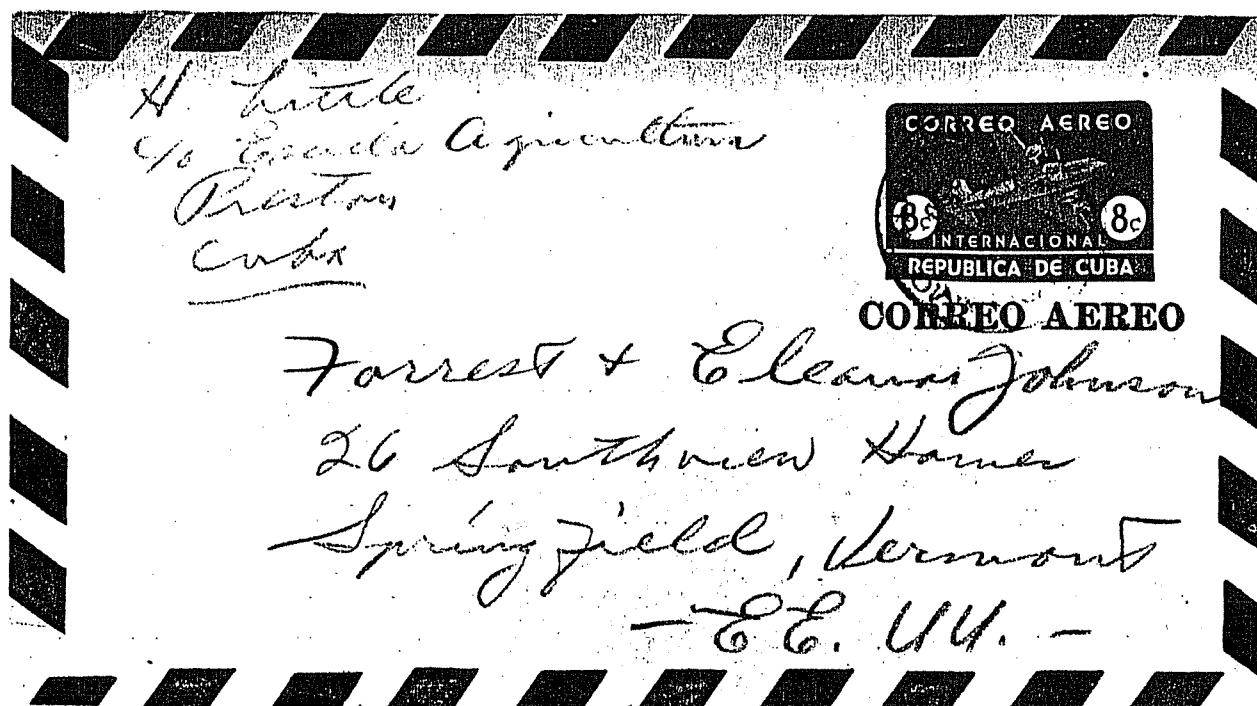 H. Little
c/o Escuela Agricultura
Preston
Cuba
CORREO AEREO
8c 8c
INTERNACIONAL
REPUBLICA DE CUBA
CORREO AEREO
Forrest + Eleanor Johnson
26 Southview Homes
Springfield, Vermont
- EE. UU. -